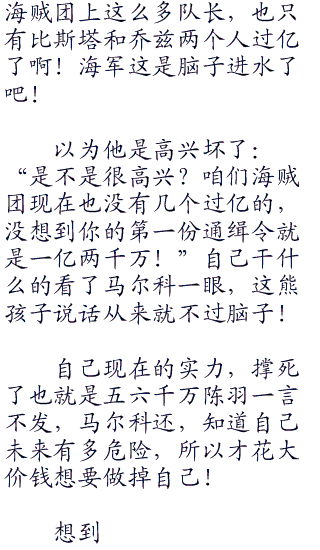 海贼团上这么多队长，也只
有比斯塔和乔兹两个人过亿
了啊！海军这是脑子进水了
吧！
以为他是高兴坏了：
“是不是很高兴？咱们海贼
团现在也没有几个过亿的，
没想到你的第一份通缉令就
是一亿两千万！”自己干什
么的看了马尔科一眼，这熊
孩子说话从来就不过脑子！
自己现在的实力，撑死
了也就是五六千万陈羽一言
不发，马尔科还，知道自己
未来有多危险，所以才花大
价钱想要做掉自己！
想到